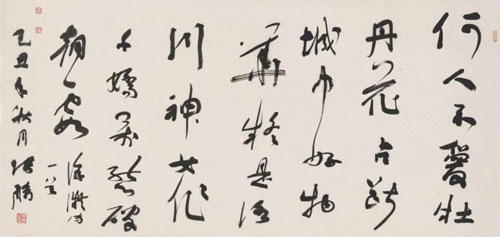 何人不愛牡
丹花占斷
城中好物
華疑是洛
川神女作
千嬌萬態破
朝霞
徐凝詩
一首
乙丑年秋月